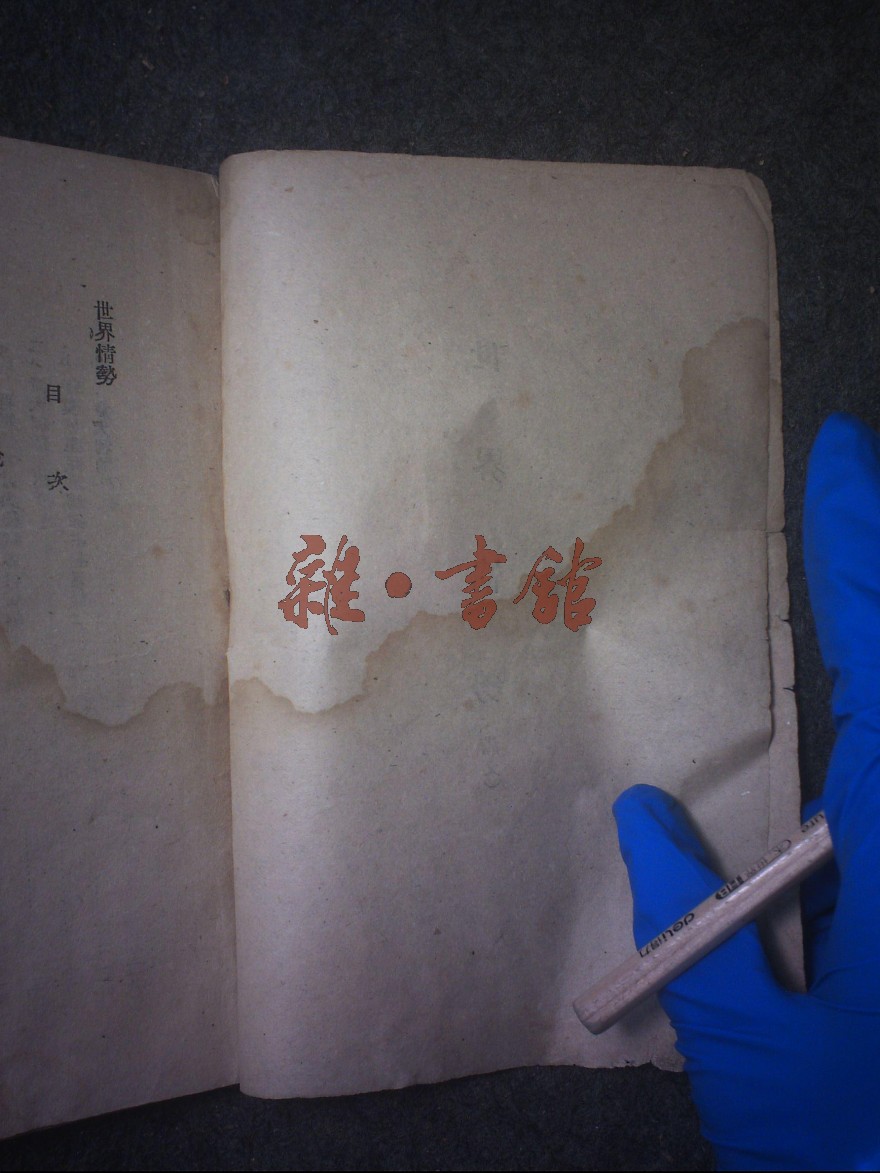 世界情勢
目次
雜·書館
deli得力
HB